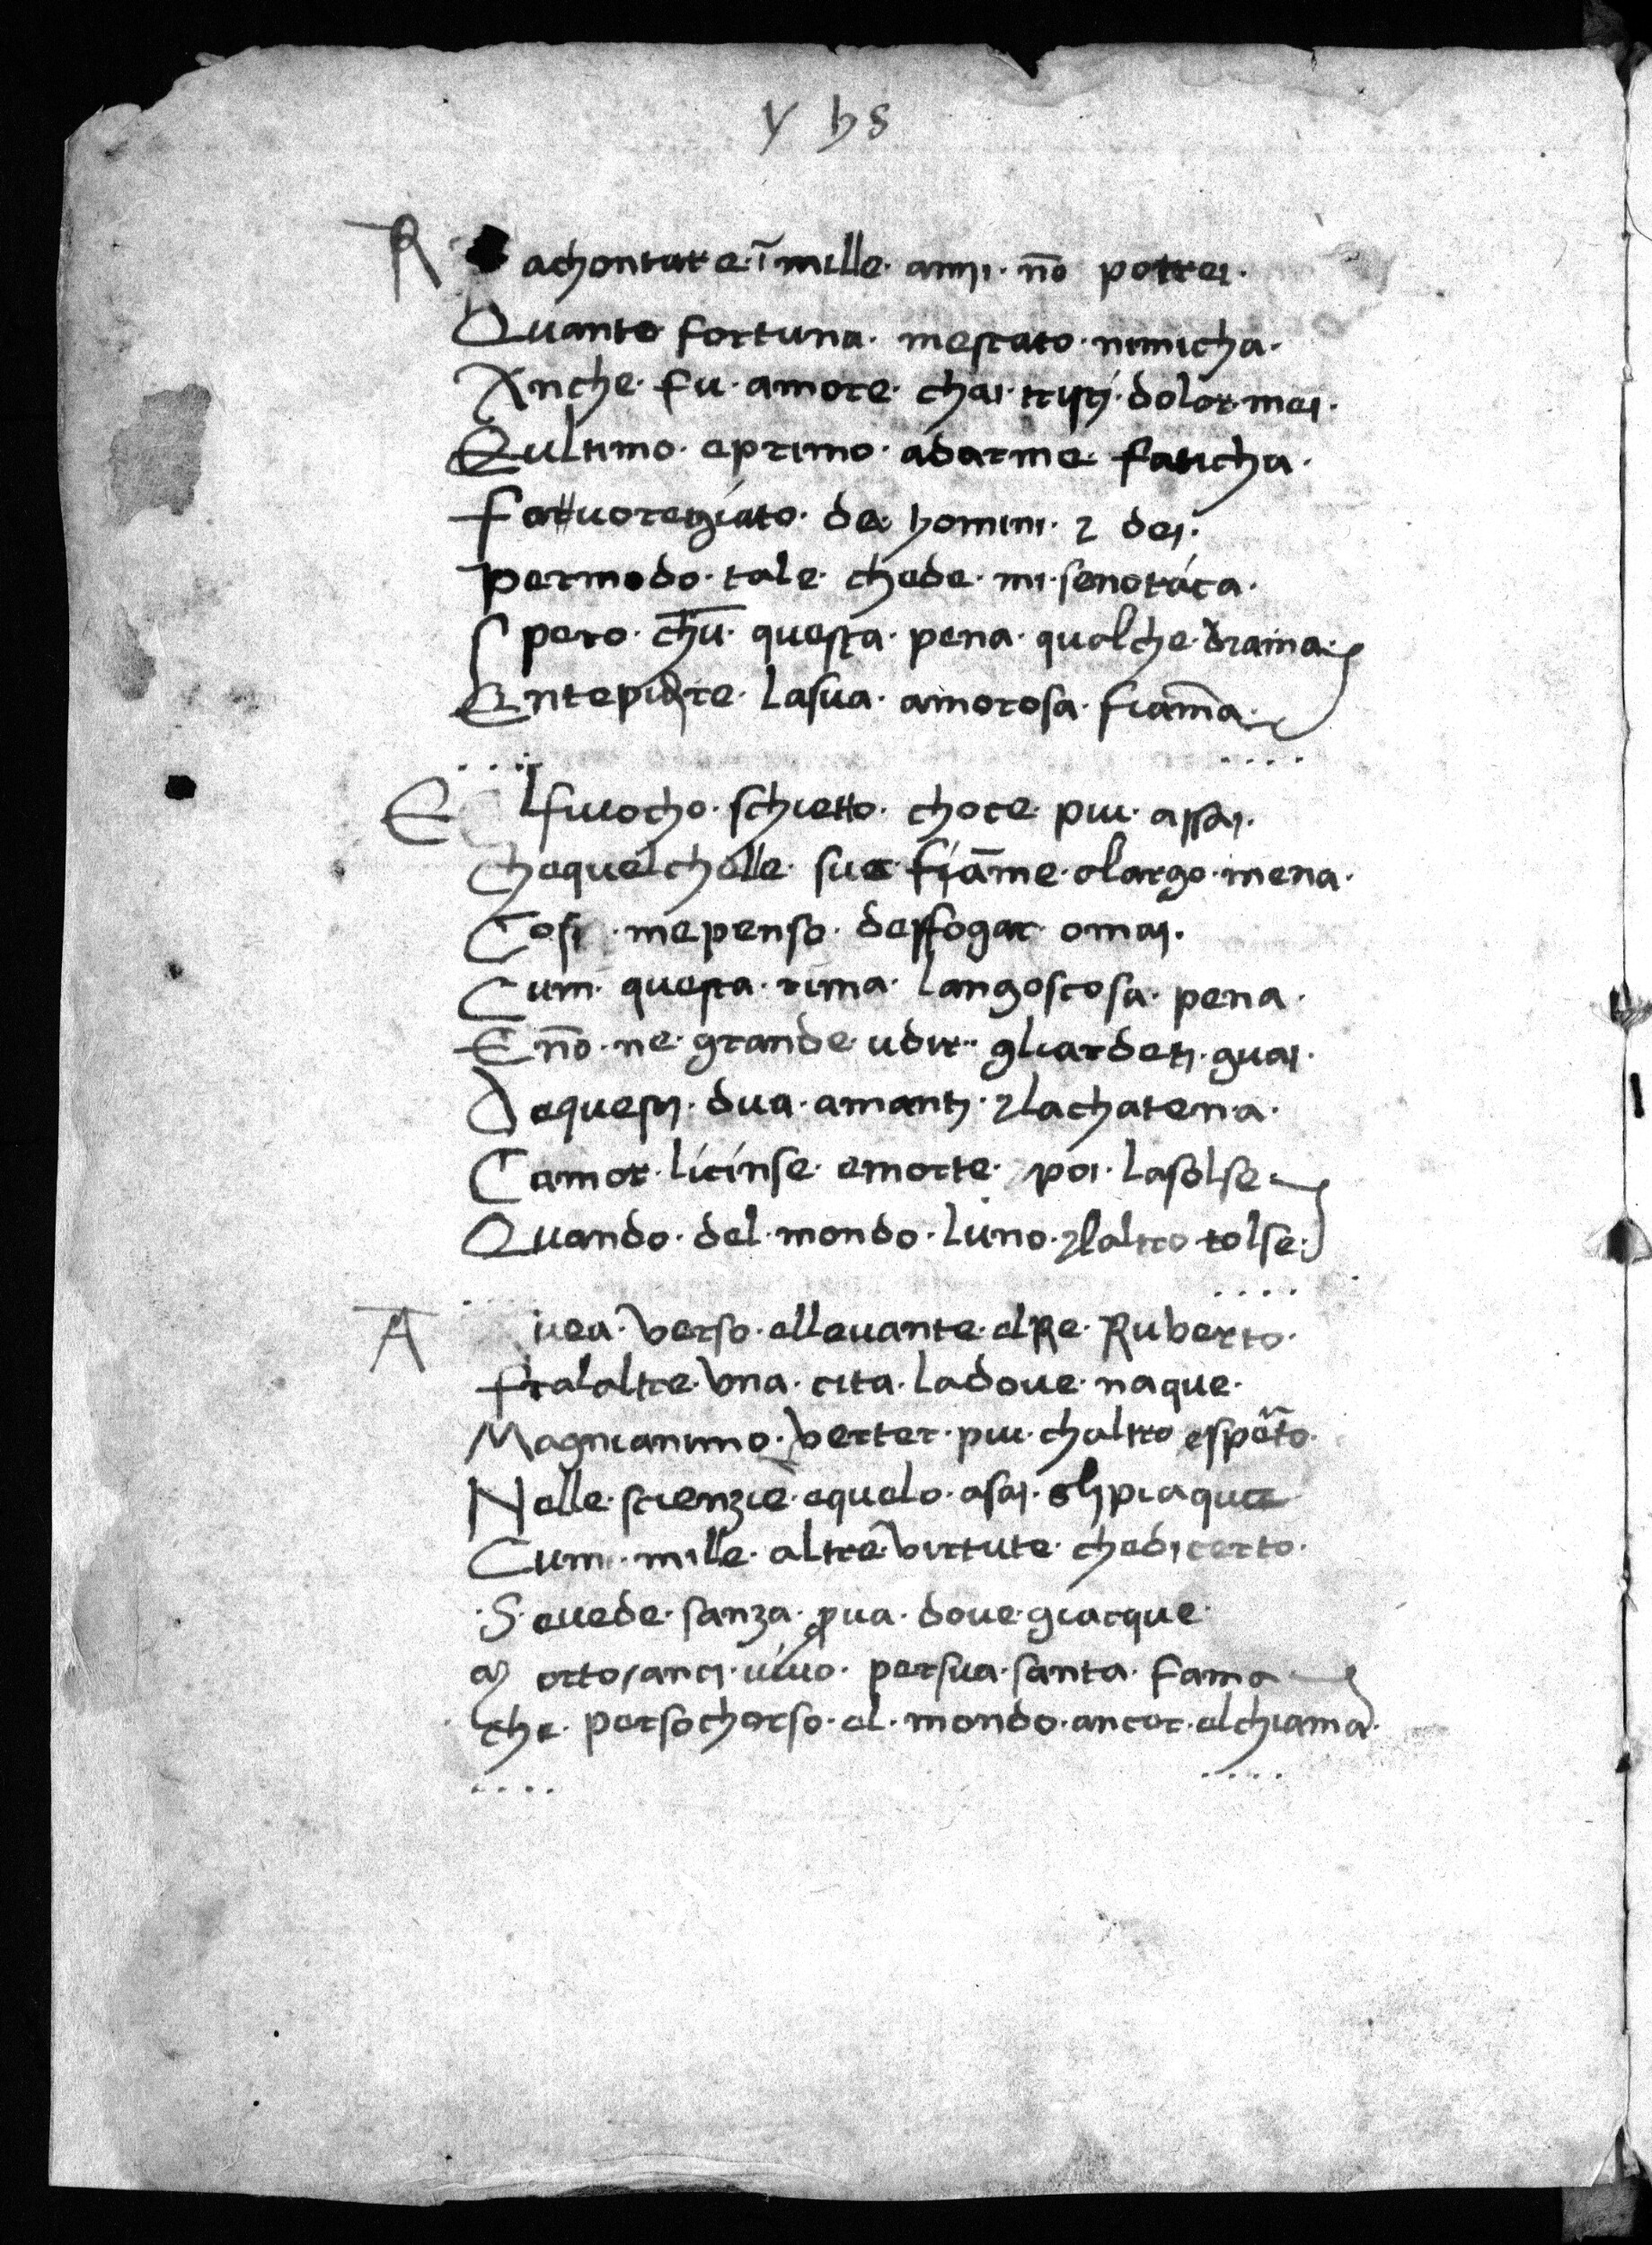 y hs
R achontare · ī mille · anni · nō potrei ·
Quanto fortuna · mestato · nimicha ·
Anche · fu · amore · chai · tristi · dolor · mei ·
E ultimo · eprimo · adarme faticha ·
Favoregiato · da homini · ⁊ dei ·
per modo · tale · chede · mi · senotrica ·
Spero · chū · questa · pena · qualche · drama
Entepidire · lasua · amorosa · fiam̄a
. . . . . . . .
E l fuocho · schietto · choce · piu · assai ·
Chequel chelle · sue fiām̄e · alargo · mena ·
Cosi · mepenso · desfogar omai ·
Cum · questa · rima · langoscosa · pena ·
E nō · ne · grande udir · gliardeti · guai ·
Dequesti · dua · amanti · ⁊ lachatena ·
Camor · licinse · emorte · poi · lasolse
Quando · del · mondo · luno · ⁊ laltro tolse
. . . . . . . .
A uea · verso · ellevante · elRe · Ruberto ·
fralaltre · vna · cita · ladove · naque ·
Magnianimo · verter · piu · chaltro esperto ·
Nelle · scienzie · equelo · asai · gli piaque
Cum · mille · altre · virtute · chedicerto ·
Sevede · sanza · pua · dove · giacque ·
Morto / anci · uiuo · persua · santa · fama
che · persochorso · el · mondo · ancor · elchiama ·
. . . . . . . . .